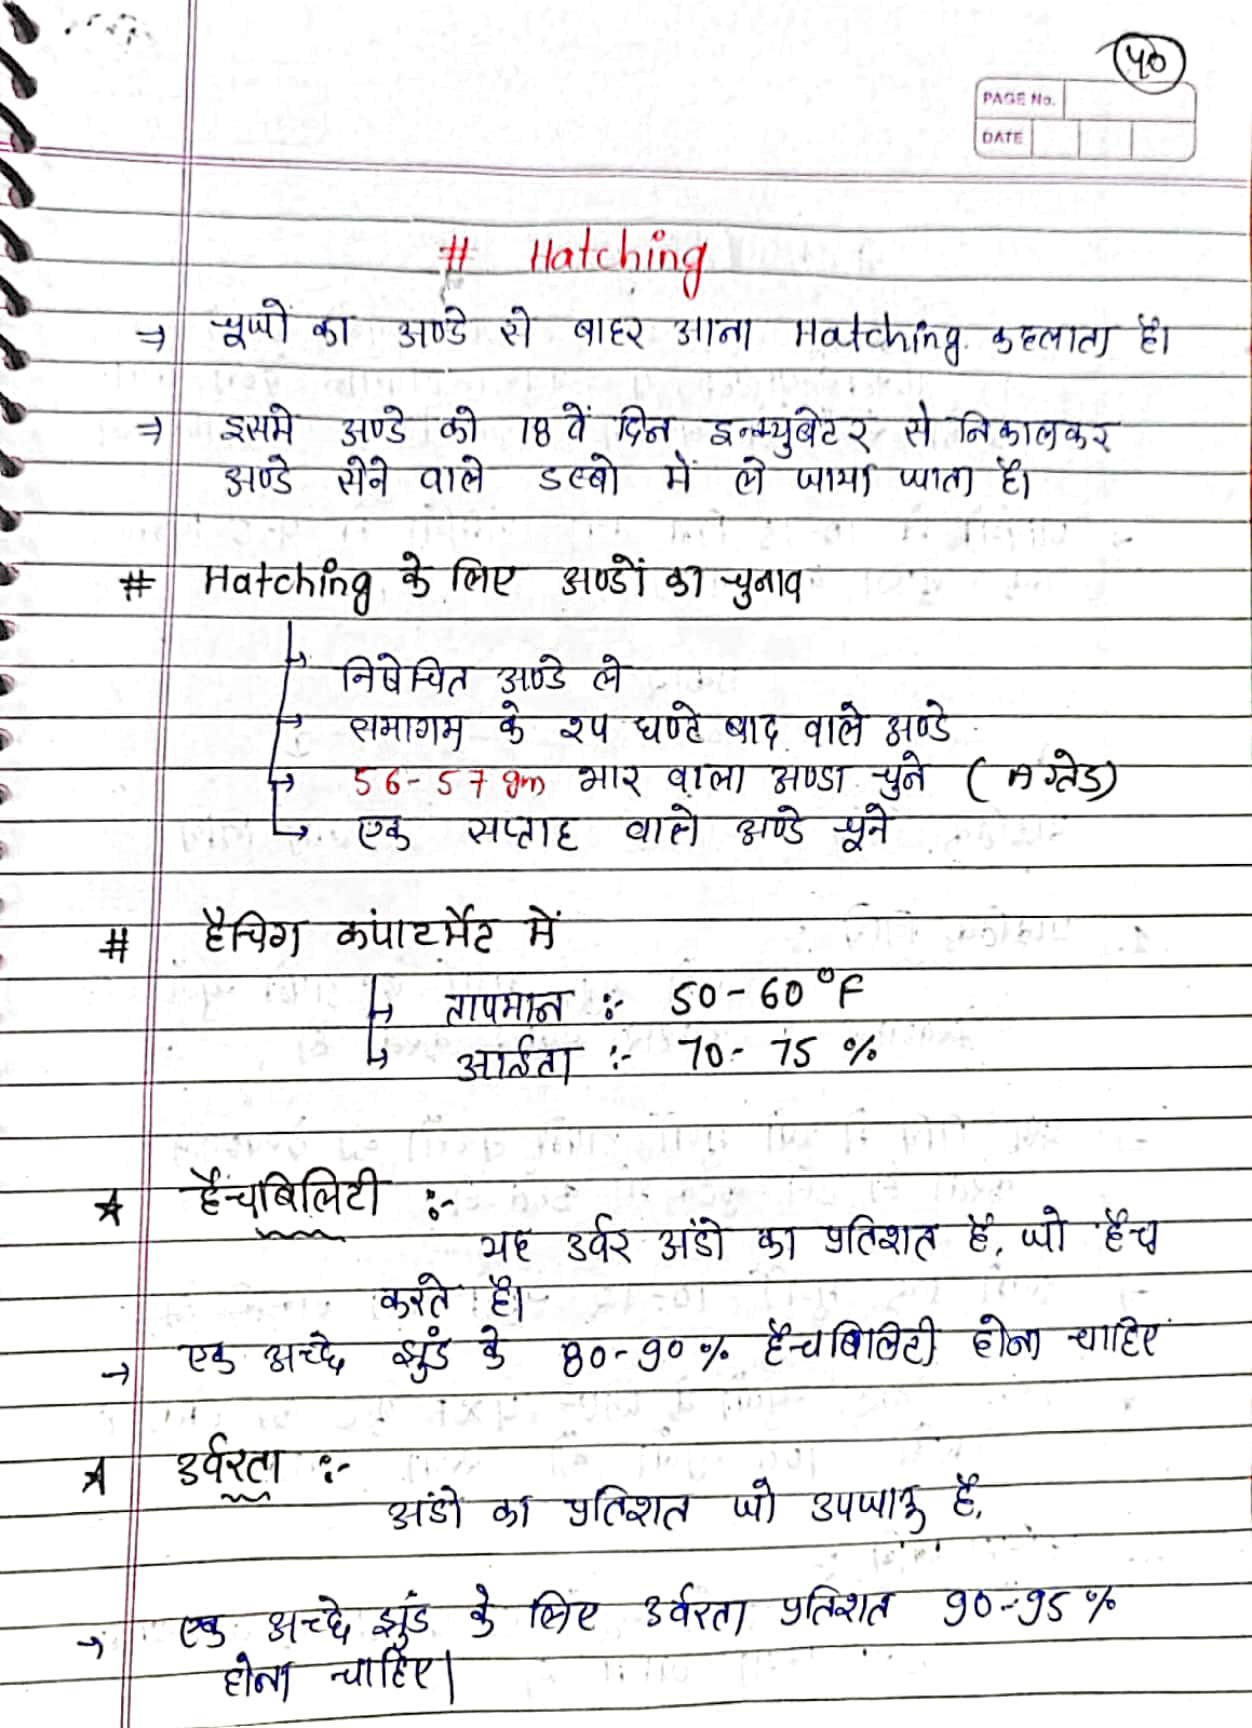 40
PAGE No.
DATE
# Hatching
→ चूजों का अण्डे से बाहर आना Hatching कहलाता है।
→ इसमे अण्डे को 18 वें दिन इन्क्युबेटर से निकालकर
अण्डे सेने वाले डब्बो में ले जाया जाता है।
# Hatching के लिए अण्डों का चुनाव
निषेचित अण्डे ले
समागम के २४ घण्टे बाद वाले अण्डे
56-57 gm भार वाला अण्डा चुने ( A ग्रेड)
एक सप्ताह वाले अण्डे चूने
# हैचिग कंपार्टमेंट में
तापमान :- 50-60°F
आर्द्रता :- 70-75 %
★ हैचबिलिटी :-
यह उर्वर अंडो का प्रतिशत है, जो हैच
करते है।
→ एक अच्छे झुंड के 80-90% हैचबिलिटी होना चाहिए
★ उर्वरता :-
अंडो का प्रतिशत जो उपजाऊ है,
→ एक अच्छे झुंड के लिए उर्वरता प्रतिशत 90-95 %
होना चाहिए|